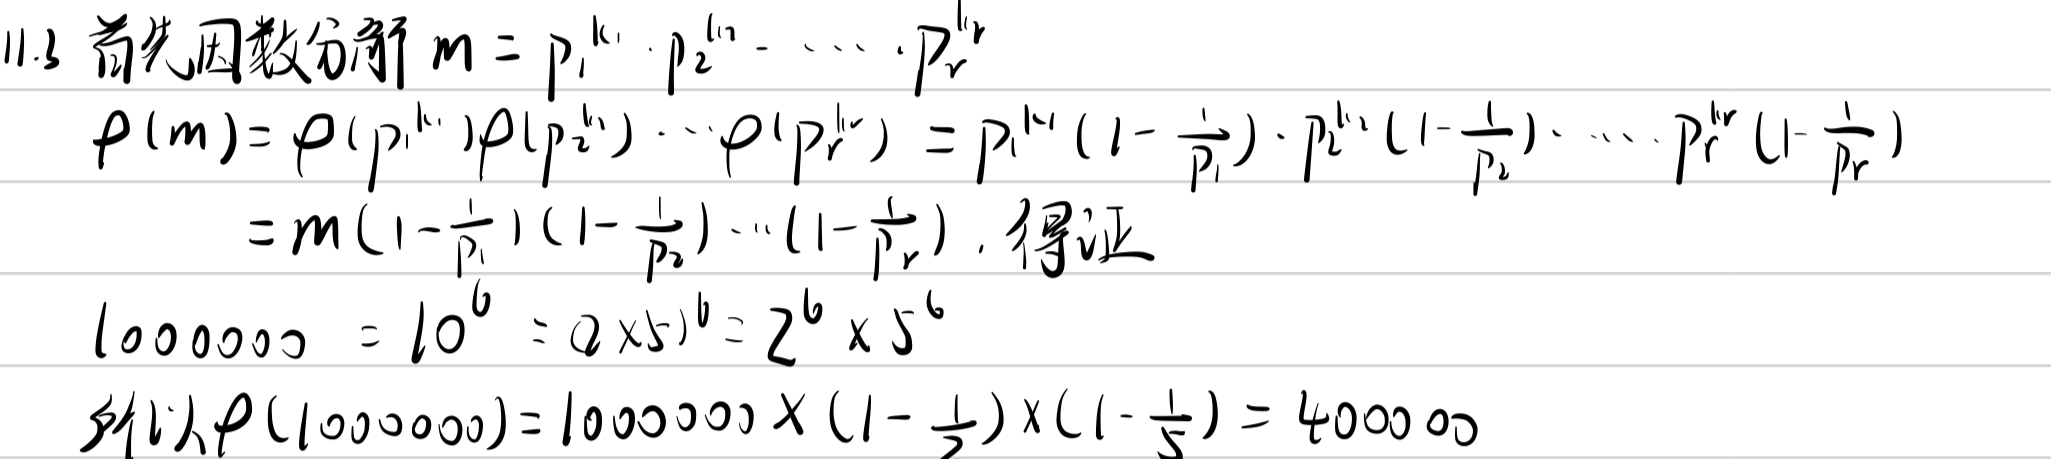 11.3 首先因数分解 m = p₁^k₁ · p₂^k₂ · ···· · p_r^k_r
φ(m) = φ(p₁^k₁)φ(p₂^k₂)···φ(p_r^k_r) = p₁^k₁(1-1/p₁)·p₂^k₂(1-1/p₂)·····p_r^k_r(1-1/p_r)
= m(1-1/p₁)(1-1/p₂)···(1-1/p_r). 得证
1000000 = 10^6 = (2×5)^6 = 2^6 × 5^6
所以φ(1000000) = 1000000 × (1-1/2)×(1-1/5) = 400000